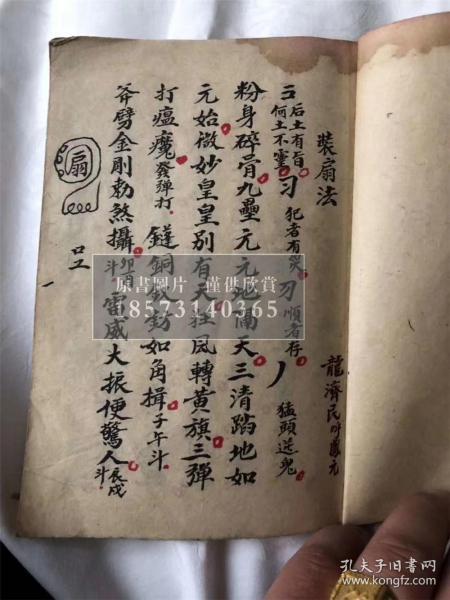 裝扇法
龍濟民
后土有旨
何土不靈
犯者有
順者存
猛頭送鬼
粉身碎骨九壘元元地開天三清踏地如
元始微妙皇皇別有天 風轉黃旗三彈
打瘟魔發彈打 銅 如角揖子午斗
斧劈金剛勅煞攝卯酉斗雷威大振便驚人辰戌斗
扇
原書圖片 謹供欣賞
18573140365
孔夫子旧书网
www.kongfz.com